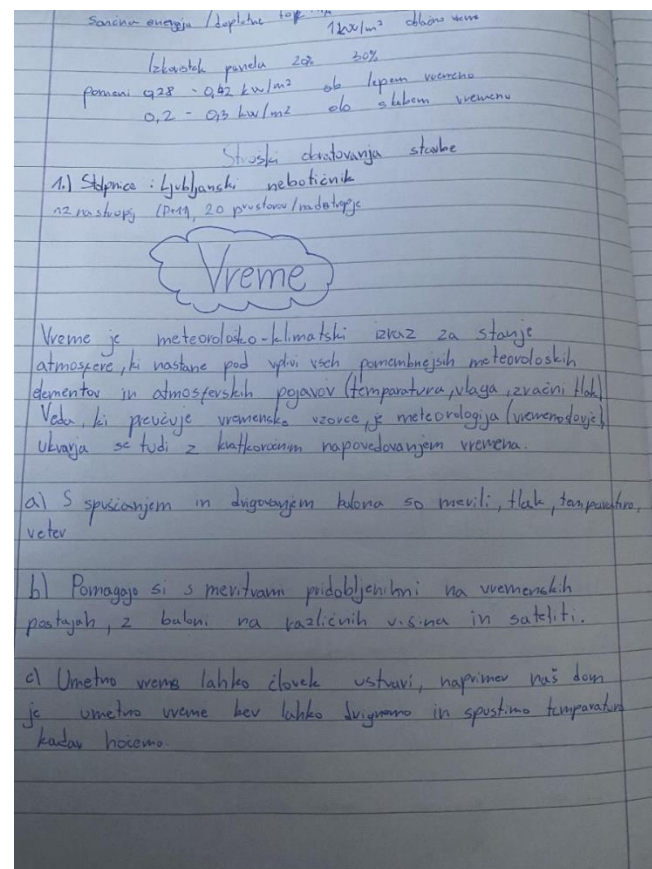 Sončna energija / dopletne
1 kW/m² oblačno vreme
Izkoristek panela 20% 30%
pomeni 0,28 - 0,42 kW/m² ob lepem vremenu
0,2 - 0,3 kW/m² ob slabem vremenu
Stroški obratovanja stavbe
1.) Stolpnice : Ljubljanski nebotičnik
12 nastropij (P+11), 20 prostorov/nadstropje
Vreme
Vreme je meteorološko-klimatski izraz za stanje
atmosfere, ki nastane pod vplivi vseh pomembnejsih meteoroloskih
elementov in atmosferskih pojavov (temparatura, vlaga, zračni tlak)
Veda, ki preučuje vremenske vzorce, je meteorologija (vremenoslovje)
Ukvarja se tudi z kratkoročnim napovedovanjem vremena.
a) S spuščanjem in dvigovanjem balona so merili, tlak, temparaturo,
veter
b) Pomagajo si s meritvami na vremenskih
postajah, z baloni na različnih višina in sateliti.
c) Umetno vreme lahko človek ustvari, naprimer naš dom
je umetno vreme ker lahko dvignemo in spustimo temparaturo
kadar hočemo.